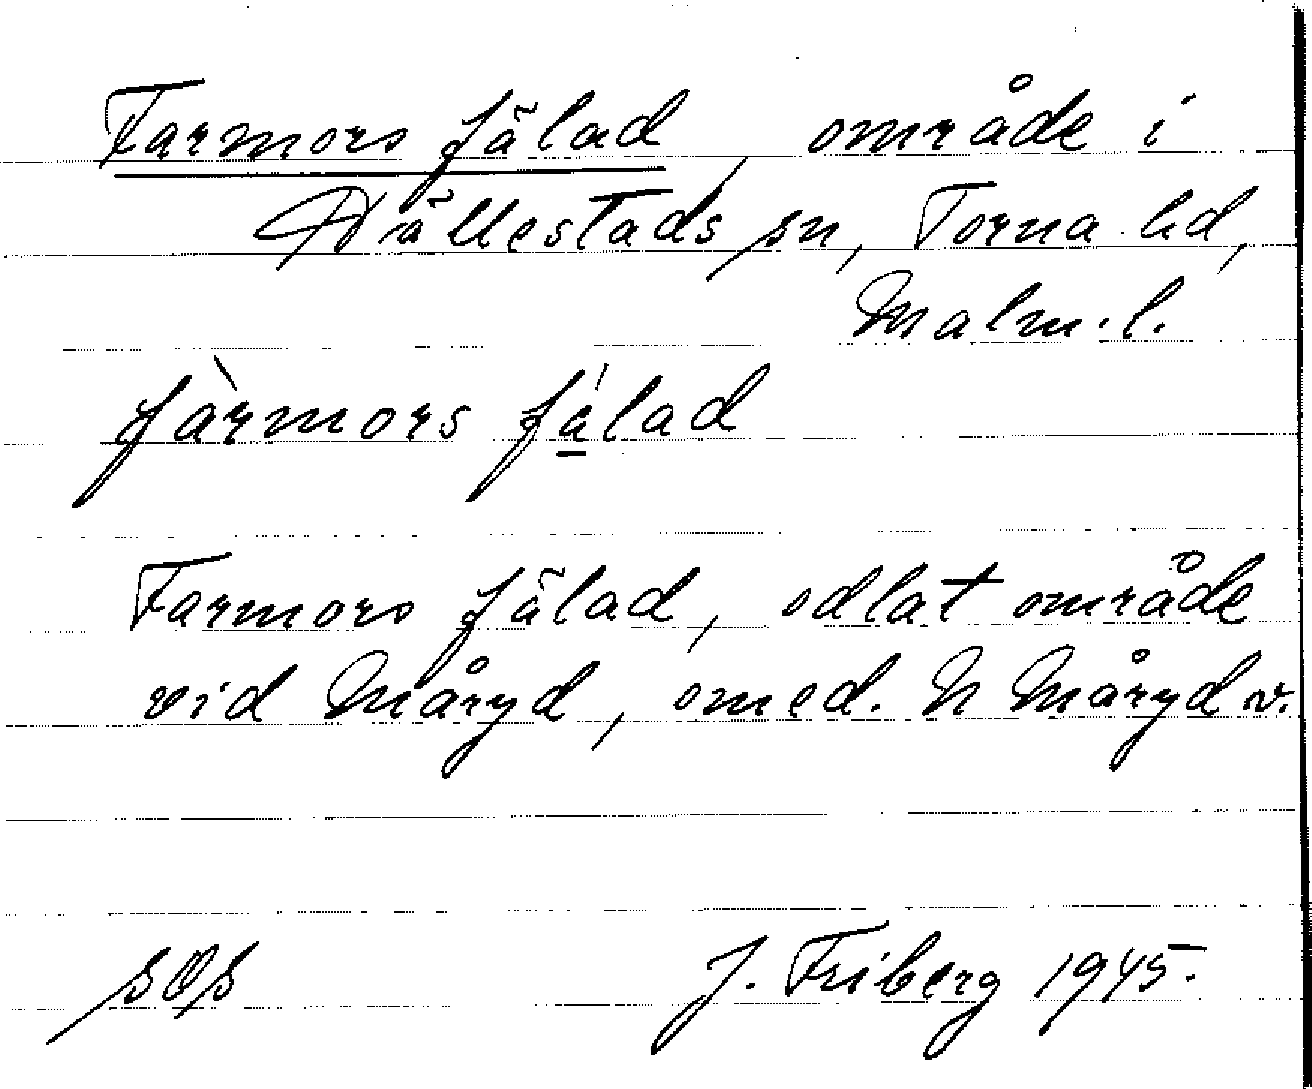 Farmors fälad, område i
Hällestads sn, Torna hd,
Malm. l.
fàrmors fá̱lad
Farmors fälad, odlat område
vid Måryd, omed. N Måryd v.
SOS J. Friberg 1945.